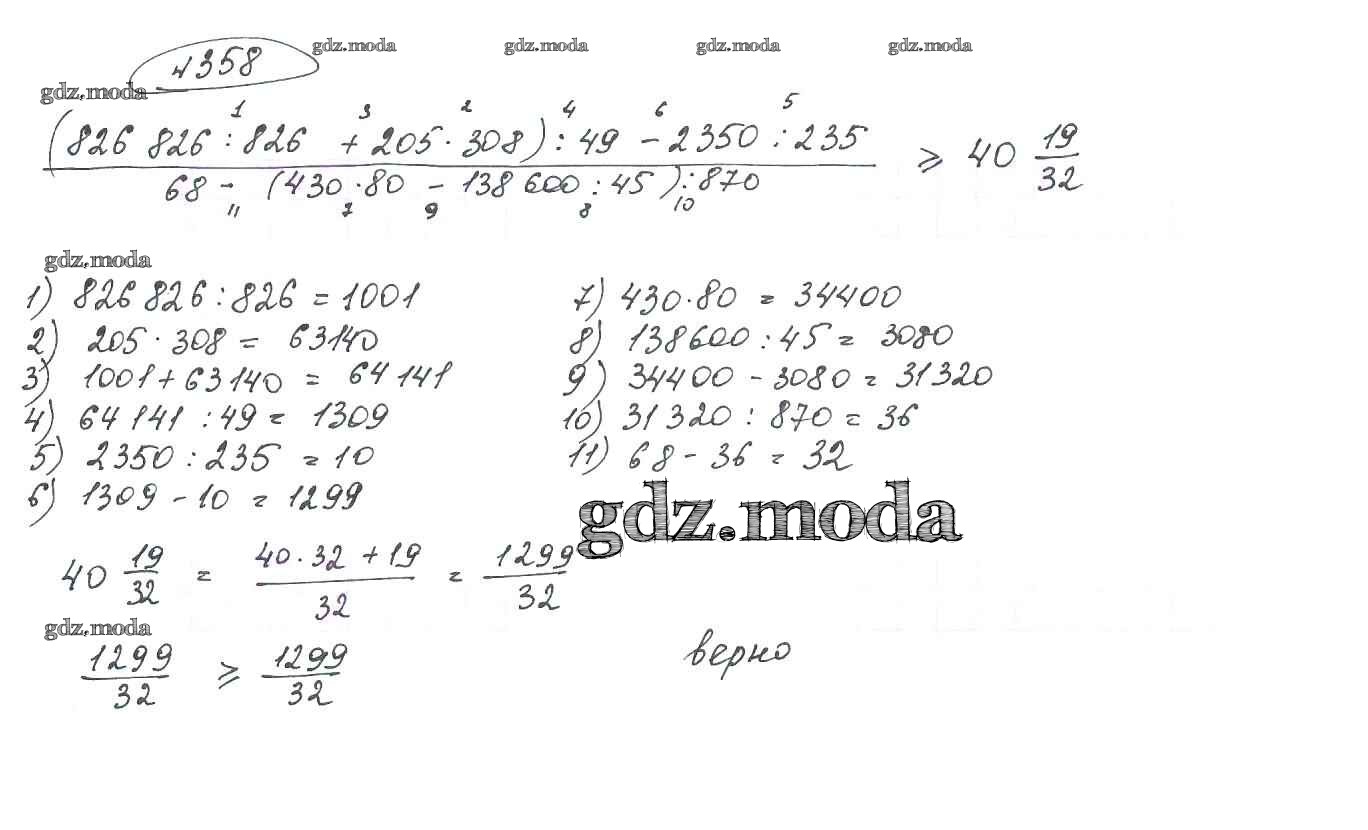 gdz.moda gdz.moda gdz.moda gdz.moda
№358
gdz.moda
1 3 2 4 6 5
(826 826 : 826 + 205 · 308) : 49 - 2350 : 235
68 - (430 · 80 - 138 600 : 45) : 870
⩾ 40 19/32
11 7 9 8 10
gdz.moda
1) 826 826 : 826 = 1001
2) 205 · 308 = 63140
3) 1001 + 63140 = 64 141
4) 64 141 : 49 = 1309
5) 2350 : 235 = 10
6) 1309 - 10 = 1299
7) 430 · 80 = 34400
8) 138600 : 45 = 3080
9) 34400 - 3080 = 31320
10) 31 320 : 870 = 36
11) 68 - 36 = 32
gdz.moda
40 19/32 = (40 · 32 + 19)/32 = 1299/32
gdz.moda
1299/32 ⩾ 1299/32
верно